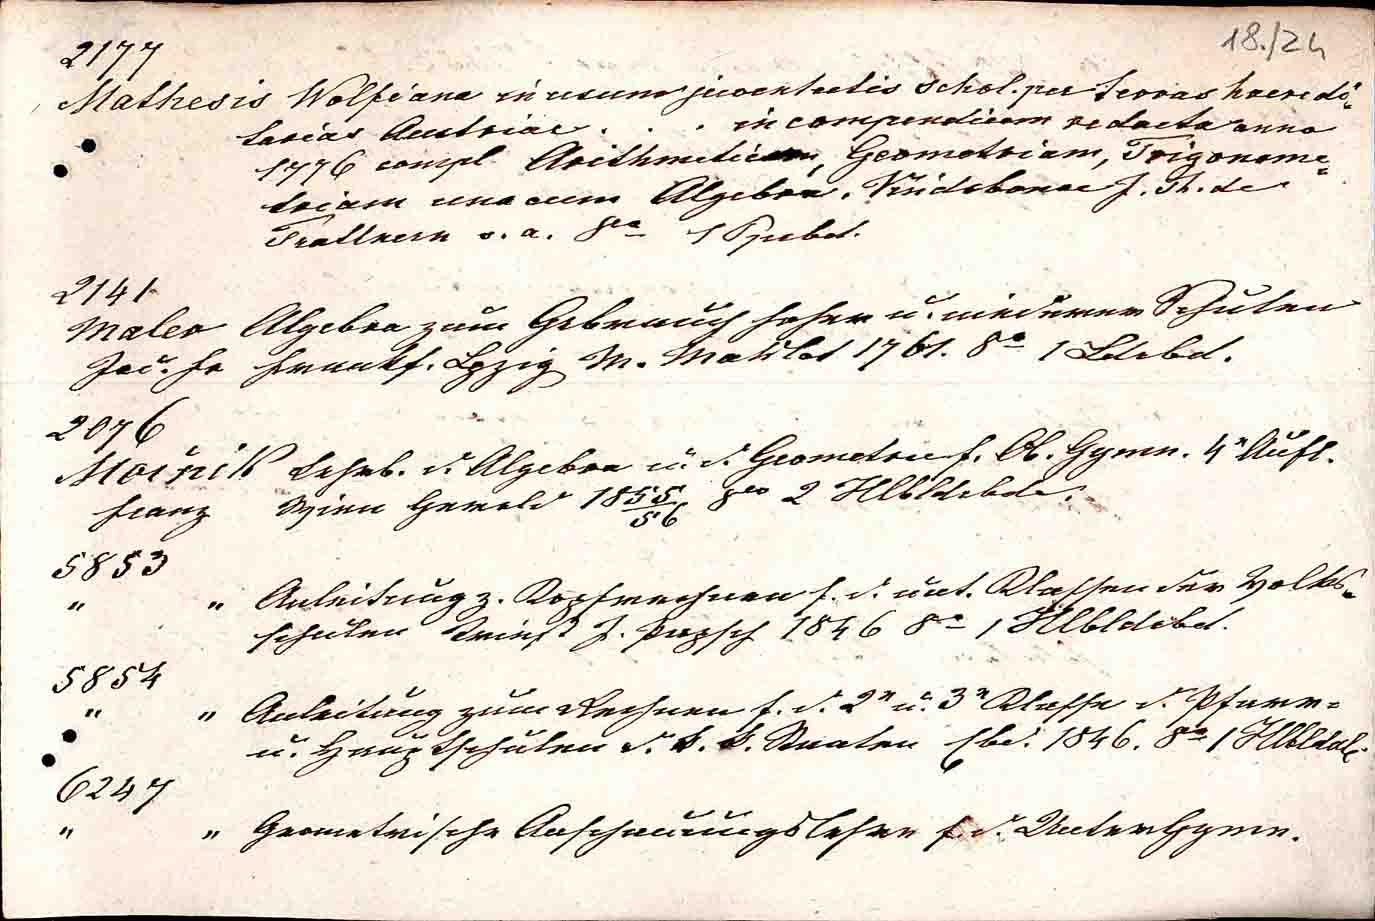 18./24
2177
Mathesis Wolfiana in usum juventutis schol. per terras haeredi-
tarias Austriae . . . in compendium redacta anno
1776 compl. Arithmeticam, Geometriam, Trigonome-
triam una cum Algebra. Vindobonae J. Th. de
Trattnern s. a. 8° 1 Ppbd.
2141
Maler Algebra zum Gebrauch hoher u. niederer Schulen
Jac. Fr Frankf. Lpzig 1761. 8° 1 Ldrbd.
2076
Močnik Lehrb. d. Algebra u. d. Geometrie f. Ob. Gymn. 4e Aufl.
Franz Wien Gerold 1855/56 8vo 2 Hlbldrbde.
5853
" " Anleitung z. Kopfrechnen f. d. unt. Klassen der Volks-
schulen Triest J. 1846 8° 1 Hlbldrbd.
5854
" " Anleitung zum Rechnen f. d. 2e u. 3e Klasse d. Pfarr-
u. Hauptschulen d. k. k. Staaten Ebd. 1846. 8° 1 Hlbldrb.
6247
" " Geometrische Anschauungslehre f. d. Unter Gymn.